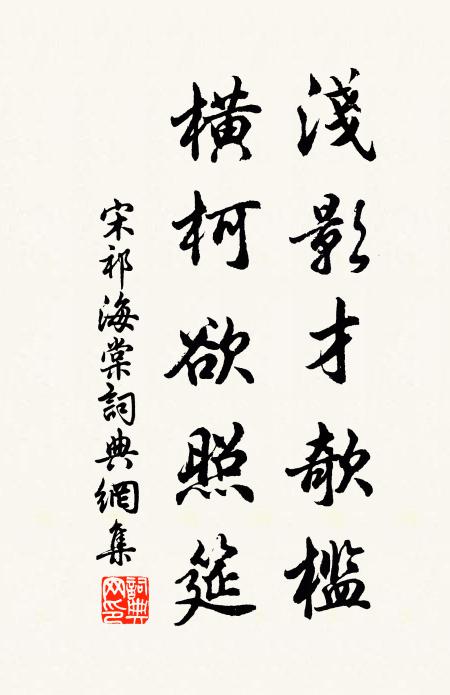 淺影才欹檻
橫柯欲照筵
宋祁海棠詞典網集
詞典網印